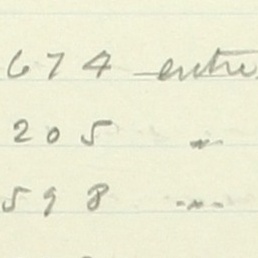 674 entre
205 "
598 "